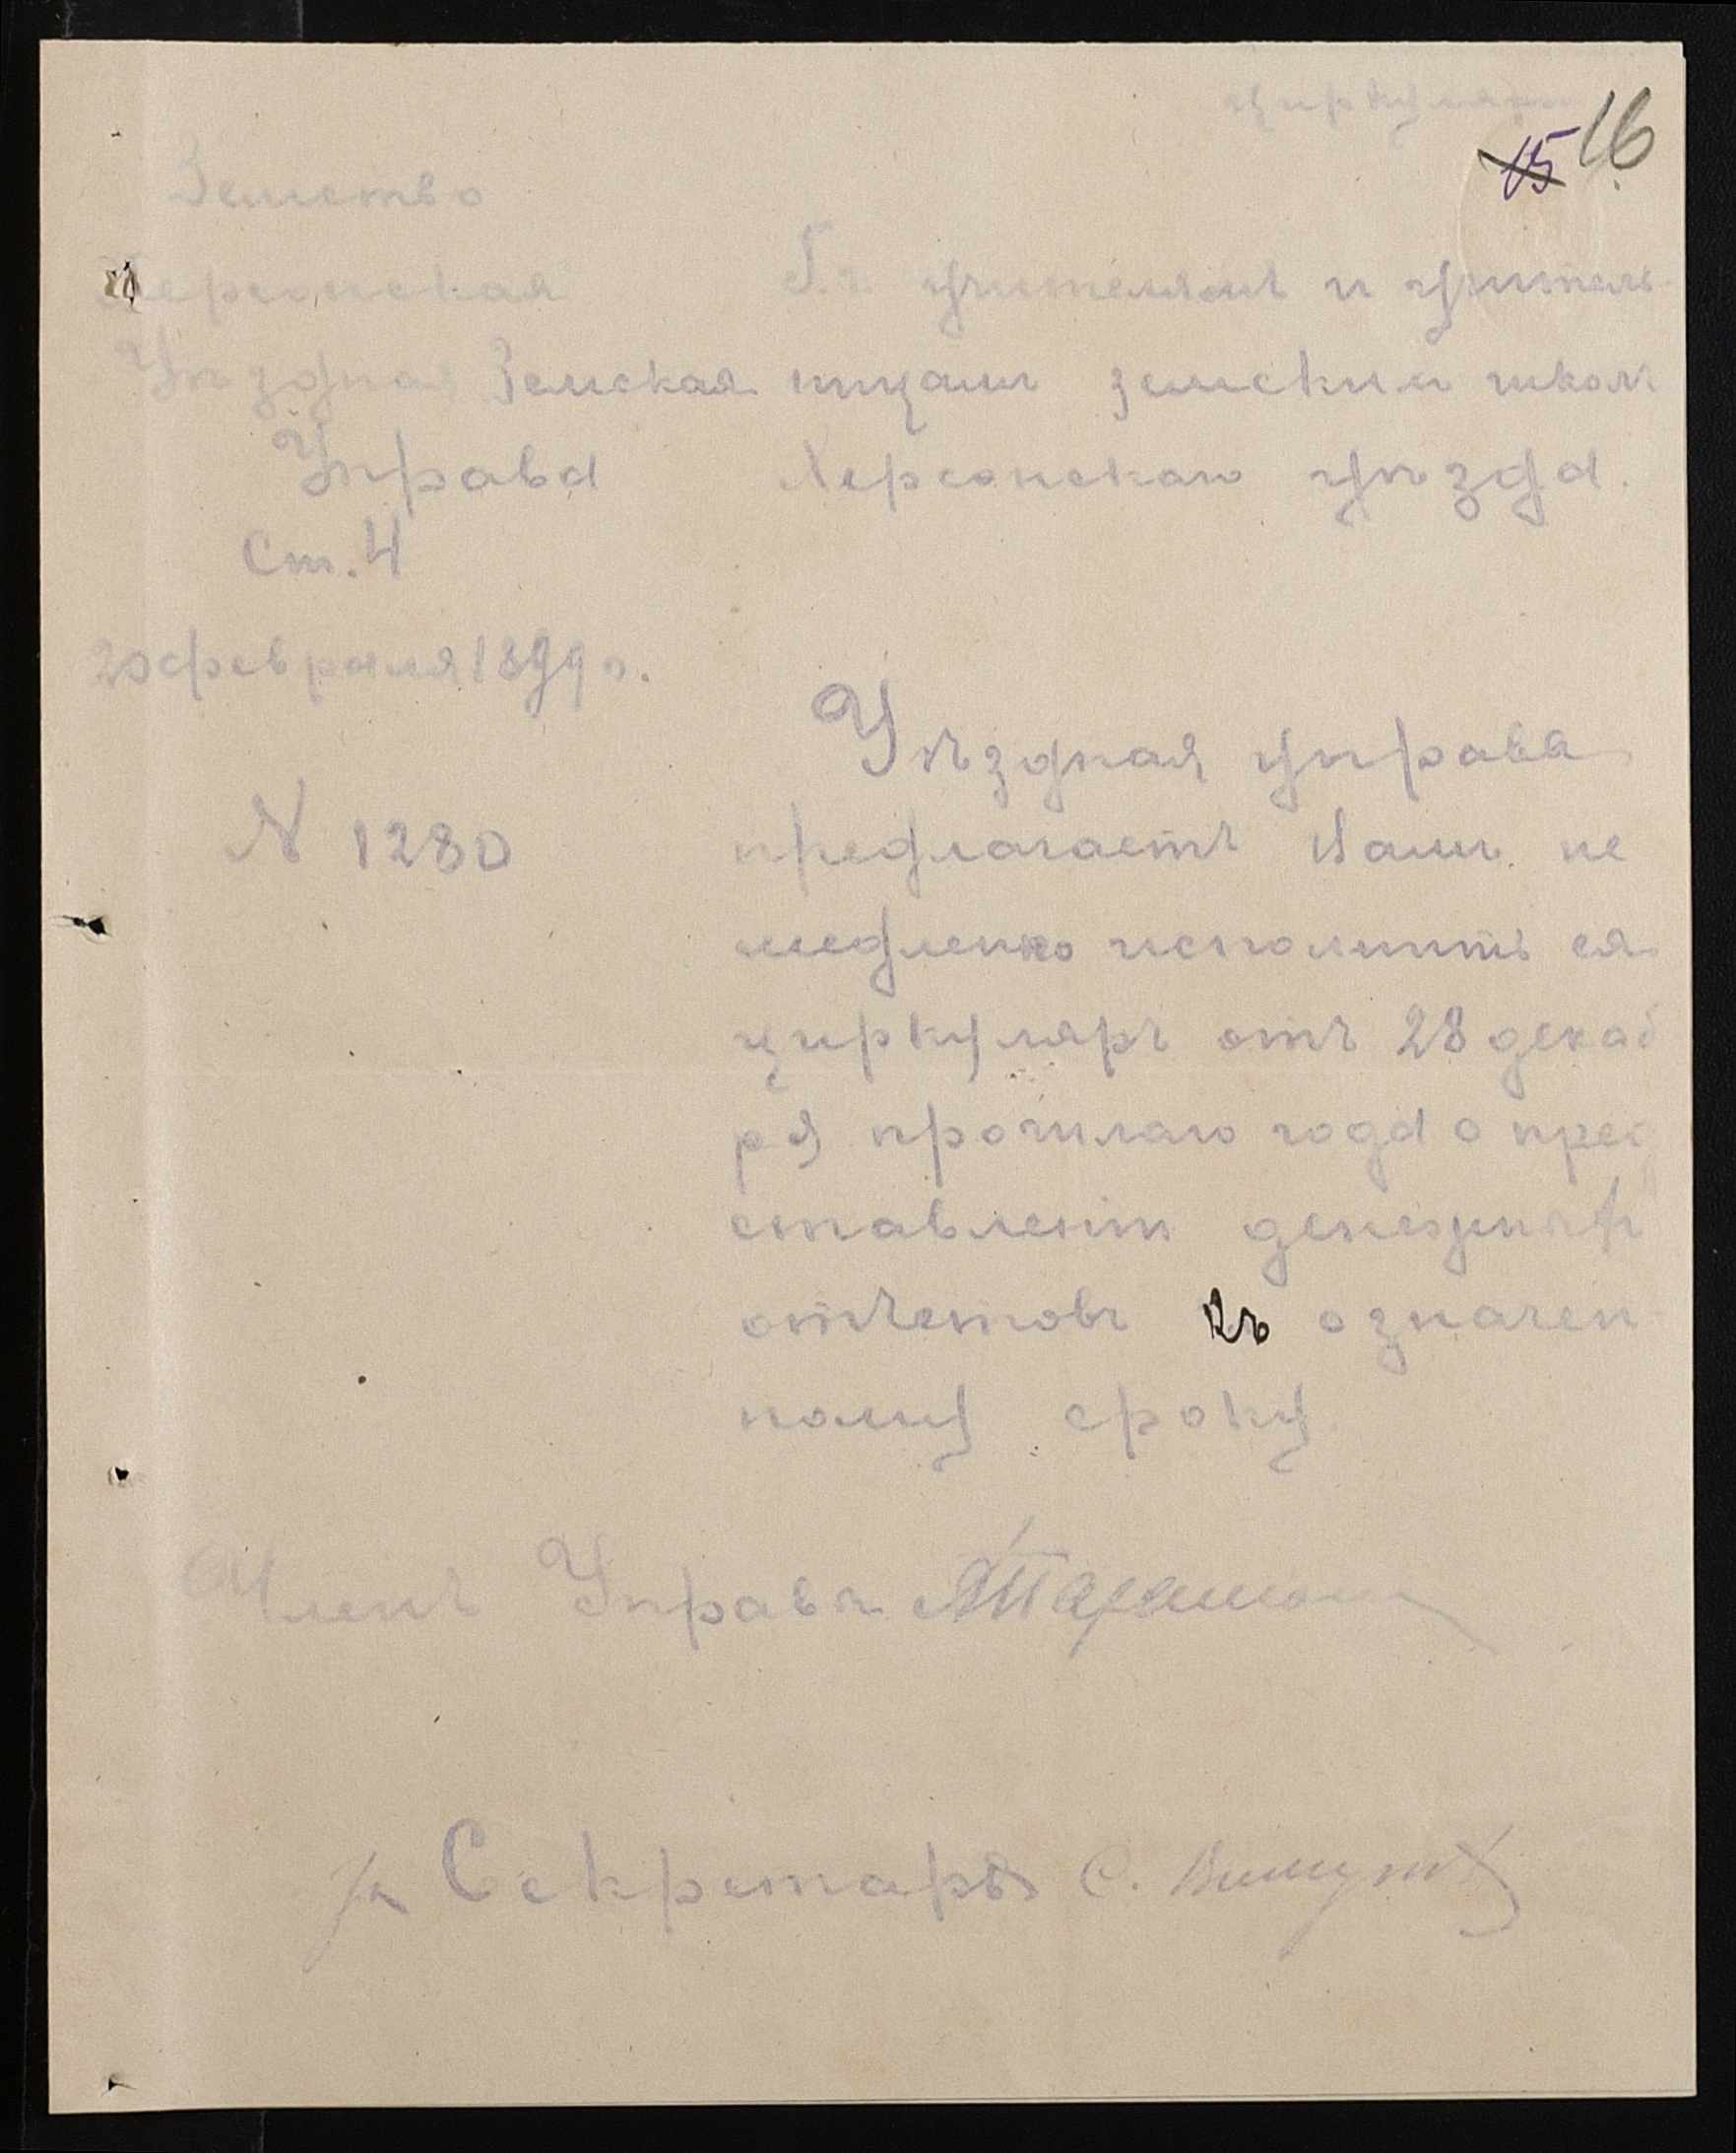 циркулярно
15 16
Земство
Херсонская
Уѣздная Земская
Управа
Ст. 4
20 февраля 1899 г.
N 1280
Г.г. учителямъ и учитель-
ницамъ земскихъ школъ
Херсонскаго уѣзда.
Уѣздная управа
предлагаетъ Вамъ не
медленно исполнить ея
циркуляръ отъ 28 декаб
ря прошлаго года о пред
ставленіи денежныхъ
отчетовъ къ означен
ному сроку
Членъ Управы
Секретарь С.